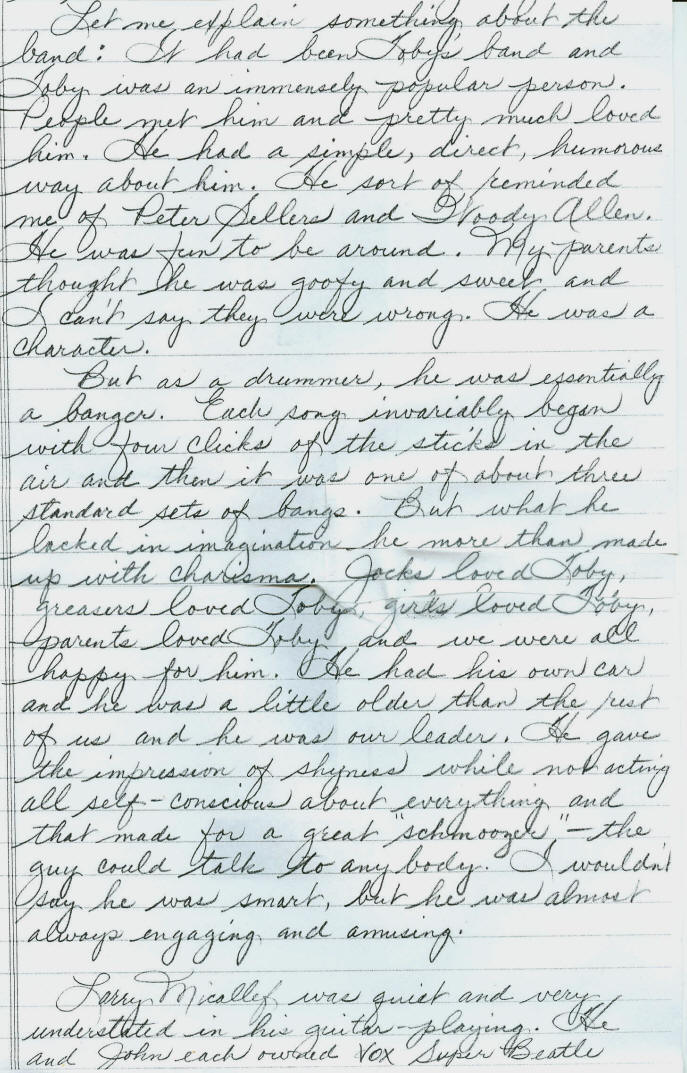 Let me explain something about the
band: It had been Toby's band and
Toby was an immensely popular person.
People met him and pretty much loved
him. He had a simple, direct, humorous
way about him. He sort of reminded
me of Peter Sellers and Woody Allen.
He was fun to be around. My parents
thought he was goofy and sweet and
I can't say they were wrong. He was a
character.
But as a drummer, he was essentially
a banger. Each song invariably began
with four clicks of the sticks in the
air and then it was one of about three
standard sets of bangs. But what he
lacked in imagination he more than made
up with charisma. Jocks loved Toby,
greasers loved Toby, girls loved Toby,
parents loved Toby and we were all
happy for him. He had his own car
and he was a little older than the rest
of us and he was our leader. He gave
the impression of shyness while not acting
all self-conscious about everything and
that made for a great "schmoozer" - the
guy could talk to anybody. I wouldn't
say he was smart, but he was almost
always engaging and amusing.
Larry Micallef was quiet and very
understated in his guitar-playing. He
and John each owned VOX Super Beatle